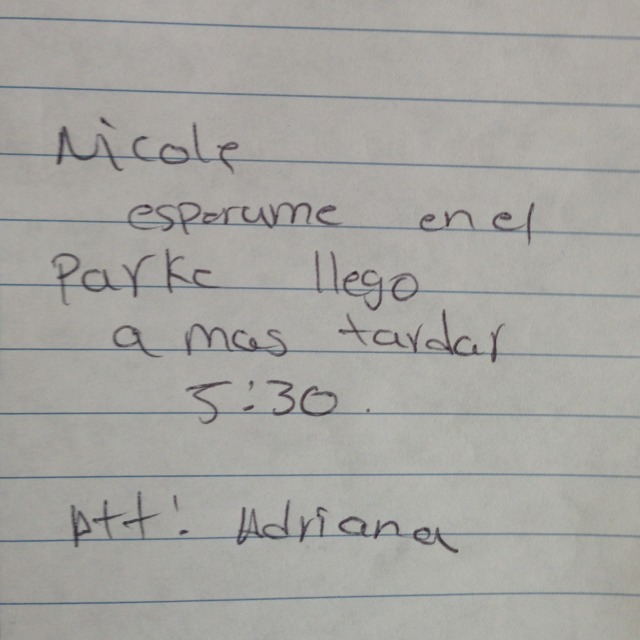 Nicole
esperame en el
Parke llego
a mas tardar
5:30.
Att: Adriana